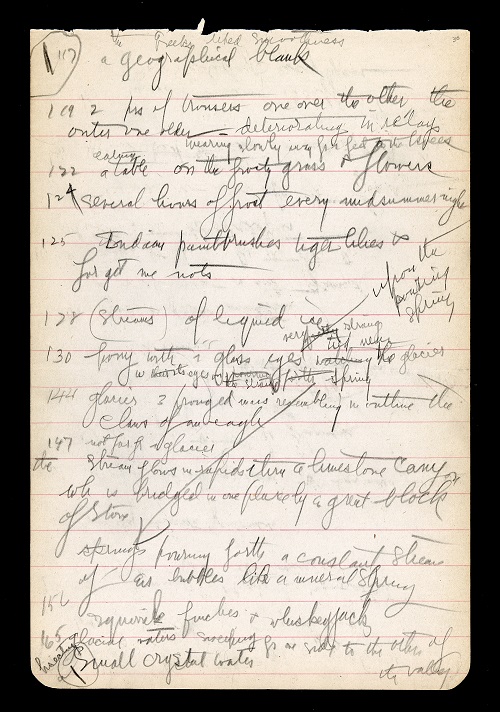 the Greeks liked smoothness
1 117 a geographical blank
119 2 prs of trousers one over the other the
outer one older — deteriorating in relays
wearing slowly way from feet to the knees
122 eating a table on the frosty grass & flowers
124 Several hours of frost every midsummer night
125 Indian paintbrushes tiger lilies &
forget me nots
upon the
pouring
Spring
128 (Streams) of liquid ice
very strong
130 pony with 2 glass eyes watching the glacier
forth spring
glacier 3 pronged mass resembling in outline the
claws of an eagle
147 not far fr glacier
the Stream flows in rapids thru a limestone Canyon
wh is bridged in one place by a great block
of Stone
springs pouring forth a constant Stream
of air bubbles like a mineral Spring
156 squirrels finches & whiskeyjack
165 glacial waters sweeping fr one side to the other of
the valley
1 Small crystal water